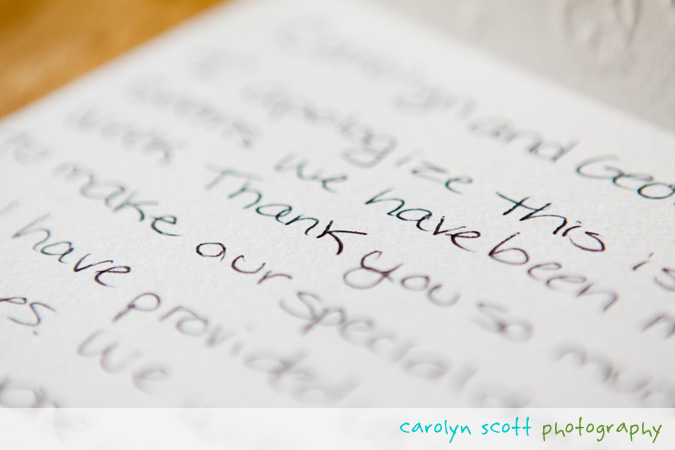 Carolyn and Geo
I apologize this is
events we have been
week. Thank you so mu
to make our special
I have provided
es. We
carolyn scott photography